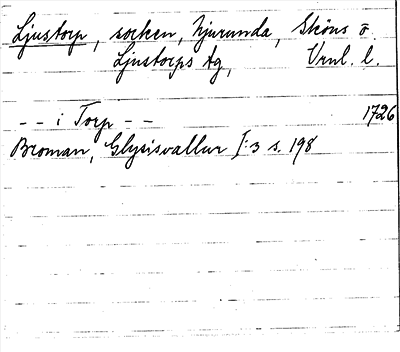 Ljustorp, socken, Njurunda, Sköns o.
Ljustorps tg, Vrnl. l.
- - i Torp - - 1726
Broman, Glysisvallur I:3 s. 198